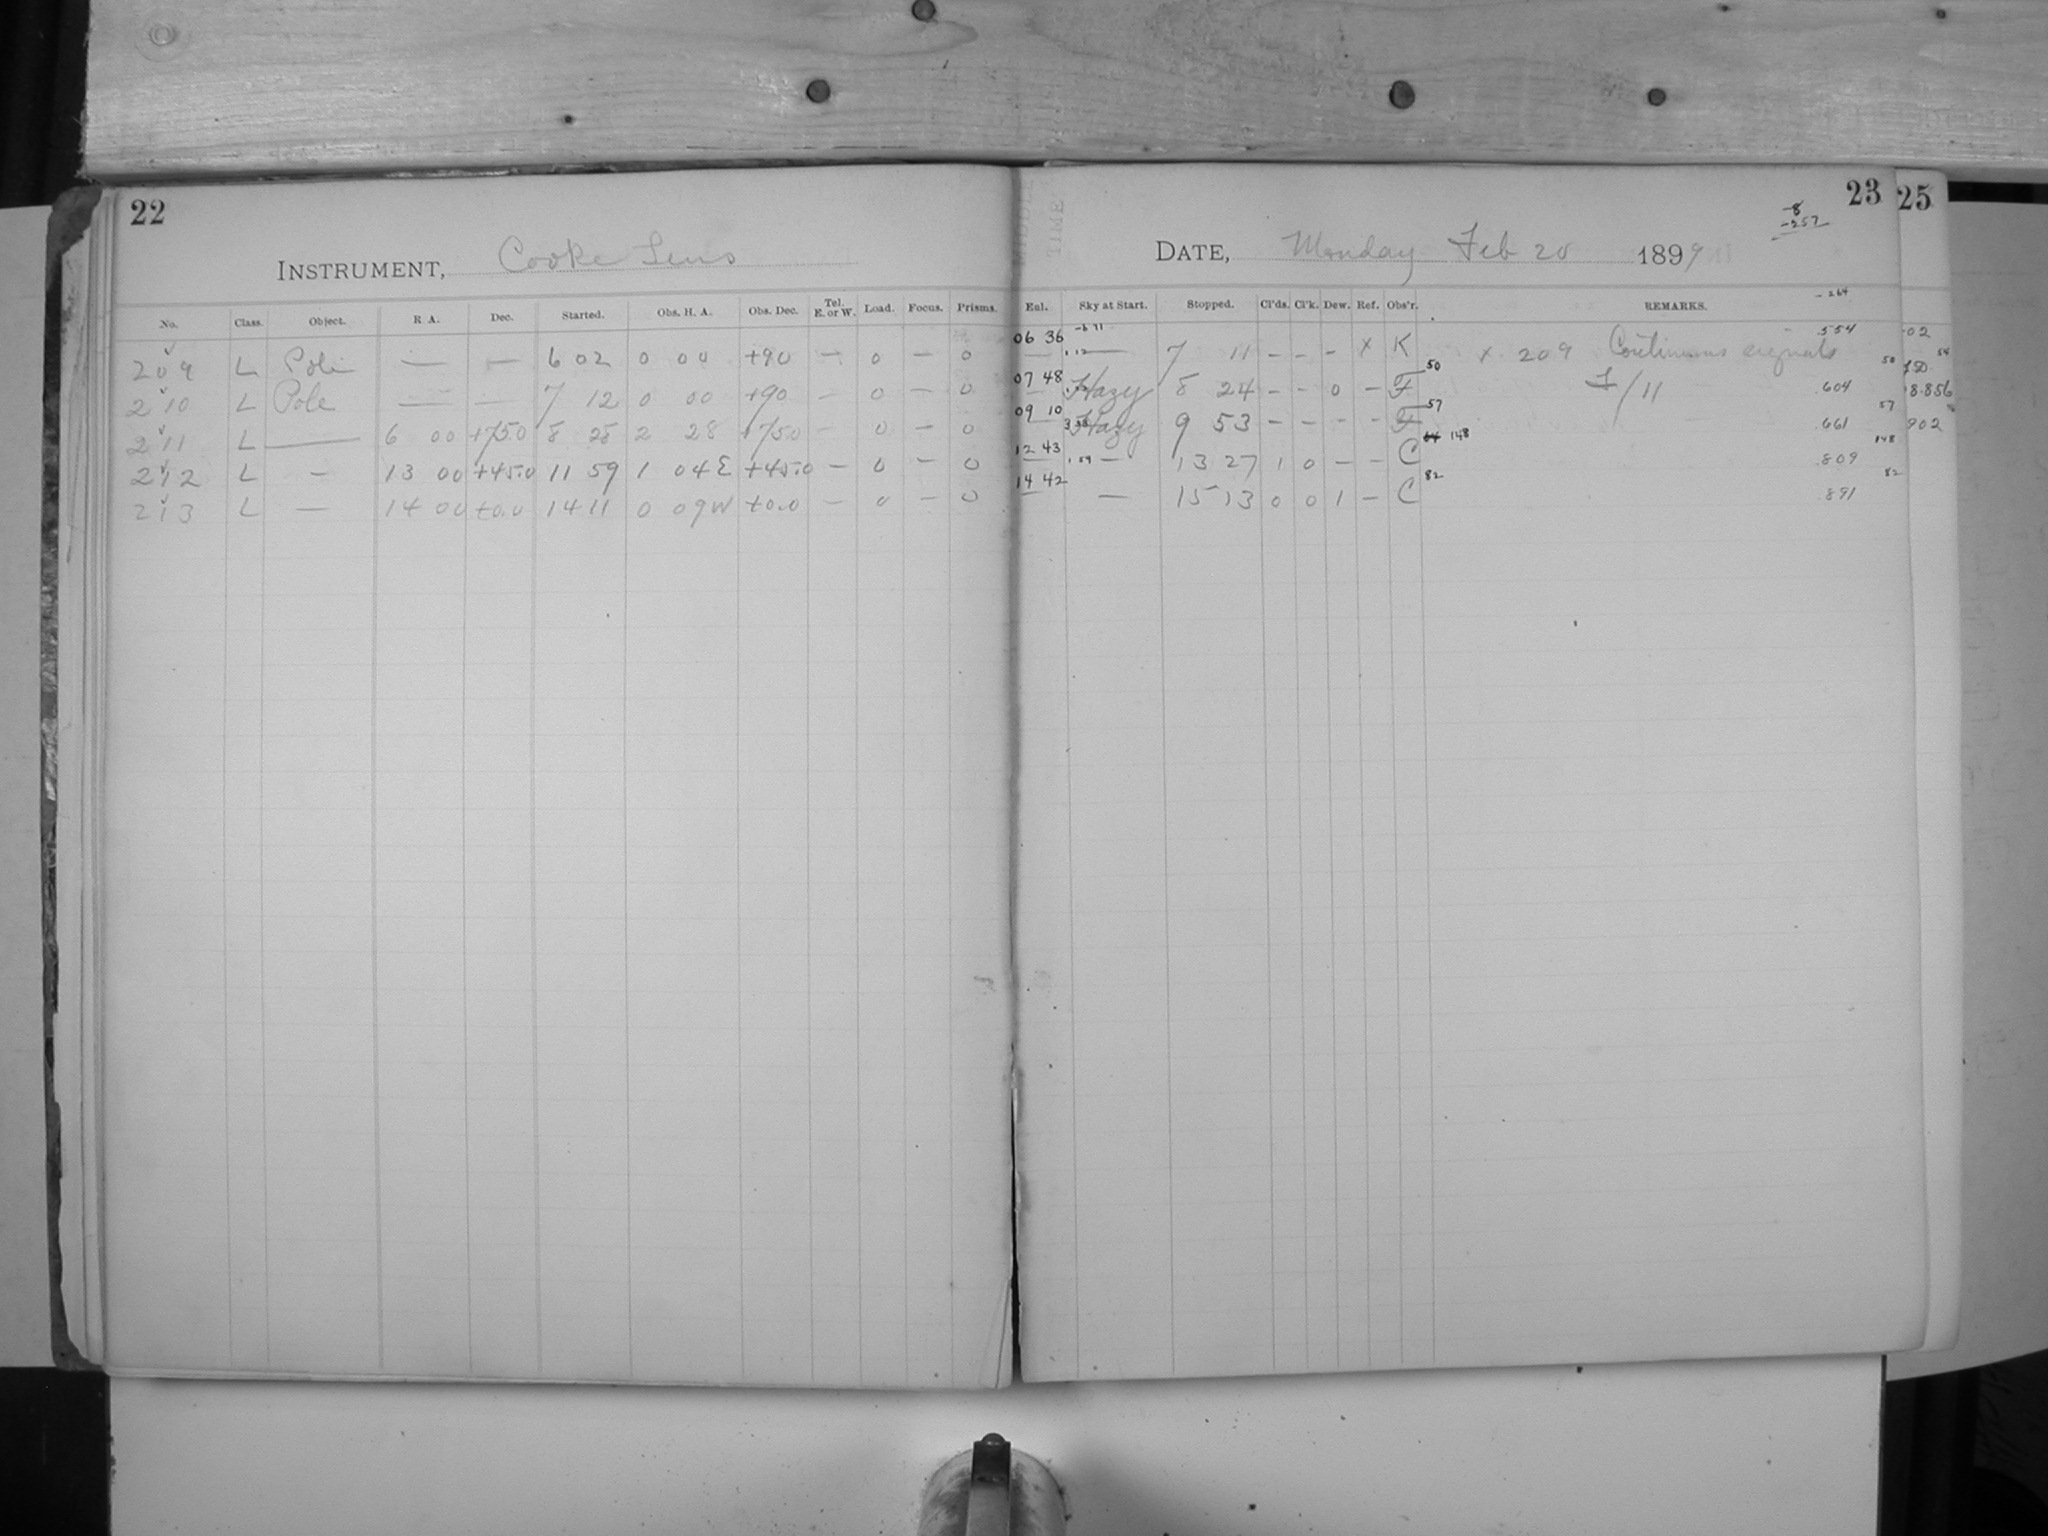 22
INSTRUMENT, Cooke Lens
No. Class. Object. R A. Dec. Started. Obs. H. A. Obs. Dec. Tel. E. or W. Load. Focus. Prisms.
209 L Pole — — 6 02 0 00 +90 — 0 — 0
210 L Pole — — 7 12 0 00 +90 — 0 — 0
211 L — 6 00 +75.0 8 28 2 28 +75.0 — 0 — 0
212 L — 13 00 +45.0 11 59 1 04 E +45.0 — 0 — 0
213 L — 14 00 +0.0 14 11 0 09 W +0.0 — 0 — 0
23
-8
-257
DATE, Monday Feb 20 1899
Enl. Sky at Start. Stopped. Cl'ds. Cl'k. Dew. Ref. Obs'r. REMARKS.
-264
06 36 .554
— — 7 11 — — — x K x 209 Continuous signals
07 48 50 50
— Hazy 8 24 — — 0 — F F/11 .604
09 10 57 57
— Hazy 9 53 — — — — F .661
12 43 148 148
— — 13 27 1 0 — — C .809
14 42 82 82
— — 15 13 0 0 1 — C .891
25
02
54
8.856
902